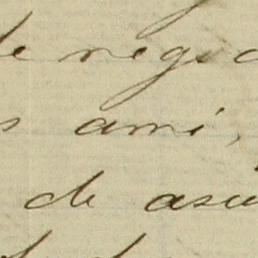 de nego
s ami,
de asu